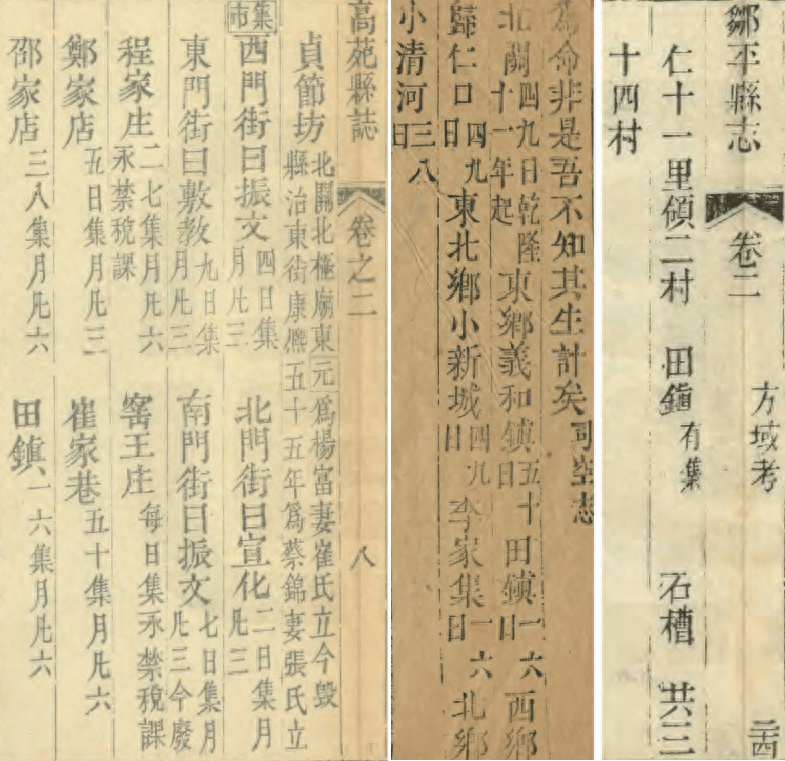 高苑縣誌 卷之二 八
貞節坊 北關北極廟東元爲楊富妻崔氏立今毀 縣治東街康熙五十五年爲蔡錦妻張氏立
集市
西門街曰振文 四日集月凡三 北門街曰宣化 二日集月凡三
東門街曰敷教 九日集月凡三 南門街曰振文 七日集月凡三今廢
程家庄 二七集月凡六永禁稅課 窰王庄 每日集永禁稅課
鄭家店 五日集月凡三 崔家巷 五十集月凡六
邵家店 三八集月凡六 田鎮 一六集月凡六
爲命非是吾不知其生計矣司空志
北關四九日乾隆十一年起東鄉義和鎮五十日田鎮一六日西鄉
歸仁口四九日東北鄉小新城四九日李家集一六日北鄉
小清河三八日
鄒平縣志 卷二 方域考 二四
仁十一里碩二村 田鎮有集 石槽 共三
十四村